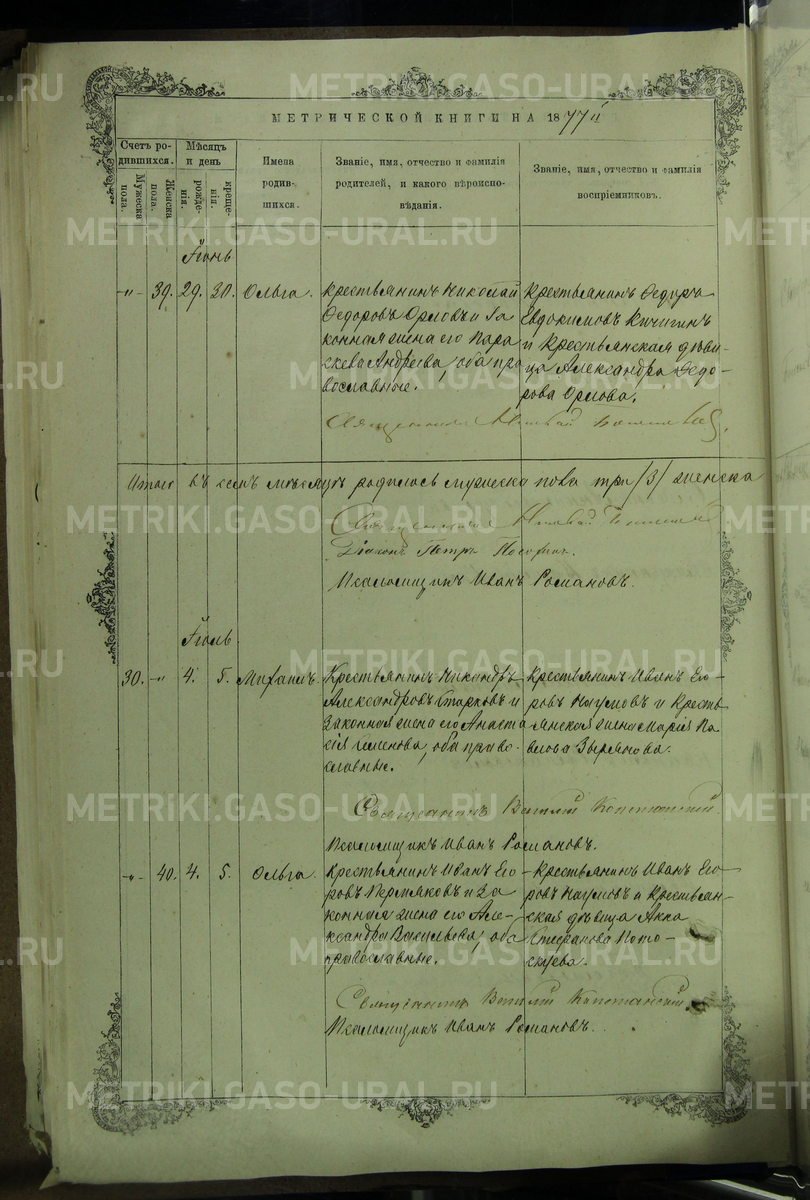 МЕТРИЧЕСКОЙ КНИГИ НА 1877й
Счетъ ро-
дившихся.
Мужеска
пола.
Женска
пола.
Мѣсяцъ
и день
рожде-
нія.
креще-
нія.
Имена
родив-
шихся.
Званіе, имя, отчество и фамилія
родителей, и какого вѣроиспо-
вѣданія.
Званіе, имя, отчество и фамилія
воспріемниковъ.
Іюнь
-"- 39. 29. 30. Ольга.
Крестьянинъ Николай
Ѳедоровъ Орловъ и За
конная жена его Пара
скева Андреева, оба пра
вославные.
Крестьянинъ Ѳедоръ
Евдокимовъ Кичигинъ
и Крестьянская дѣви-
ца Александра Ѳедо-
рова Орлова.
Священникъ
Итого въ семъ мѣсяцѣ родилось мужеска пола три /3/ женска
Священникъ
Діаконъ Петръ
Псаломщикъ Иванъ Романовъ.
Іюль
30. -"- 4. 5. Михаилъ.
Крестьянинъ Никандръ
Александровъ Старковъ и
Законная жена его Анаста
сія Семенова, оба право-
славные.
Крестьянинъ Иванъ Его-
ровъ Наумовъ и Кресть
янская жена Марія Па
влова Зырянова.
Священникъ
Псаломщикъ Иванъ Романовъ.
-"- 40. 4. 5. Ольга.
Крестьянинъ Иванъ Его
ровъ Пермяковъ и За
конная жена его Але-
ксандра Васильева, оба
православные.
Крестьянинъ Иванъ Его-
ровъ Наумовъ и Крестьян-
ская дѣвица Анна
Стефанова Пото-
скуева.
Священникъ
Псаломщикъ Иванъ Романовъ.
METRIKI.GASO-URAL.RU